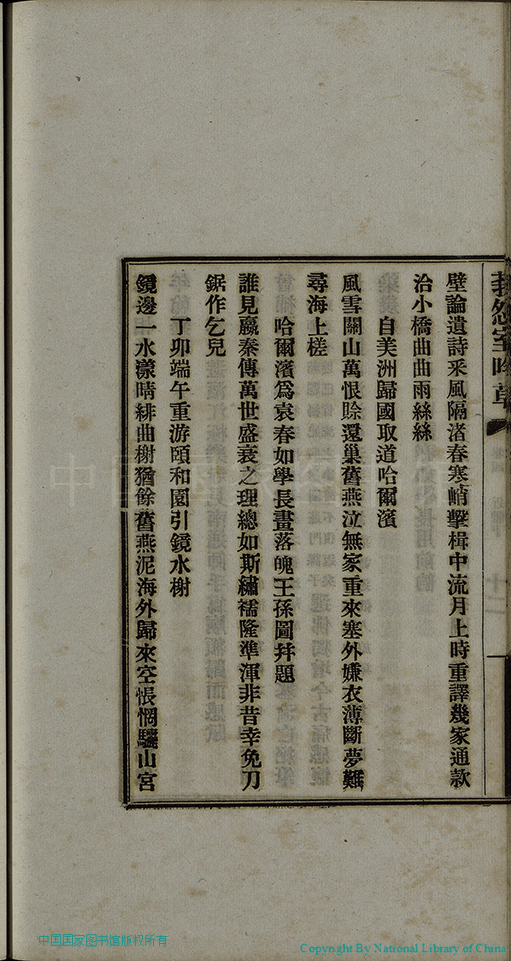 壁論遺詩采風隔渚春寒峭擊楫中流月上時重譯幾家通款
洽小橋曲曲雨絲絲
自美洲歸國取道哈爾濱
風雪關山萬恨賒還巢舊燕泣無家重來塞外嫌衣薄斷夢難
尋海上槎
哈爾濱爲袁春如學長畫落魄王孫圖并題
誰見嬴秦傳萬世盛衰之理總如斯繡襦隆準渾非昔幸免刀
鋸作乞兒
丁卯端午重游頤和園引鏡水榭
鏡邊一水漾晴緋曲榭猶餘舊燕泥海外歸來空悵惘驪山宮
中国国家图书馆版权所有
Copyright By National Library of China